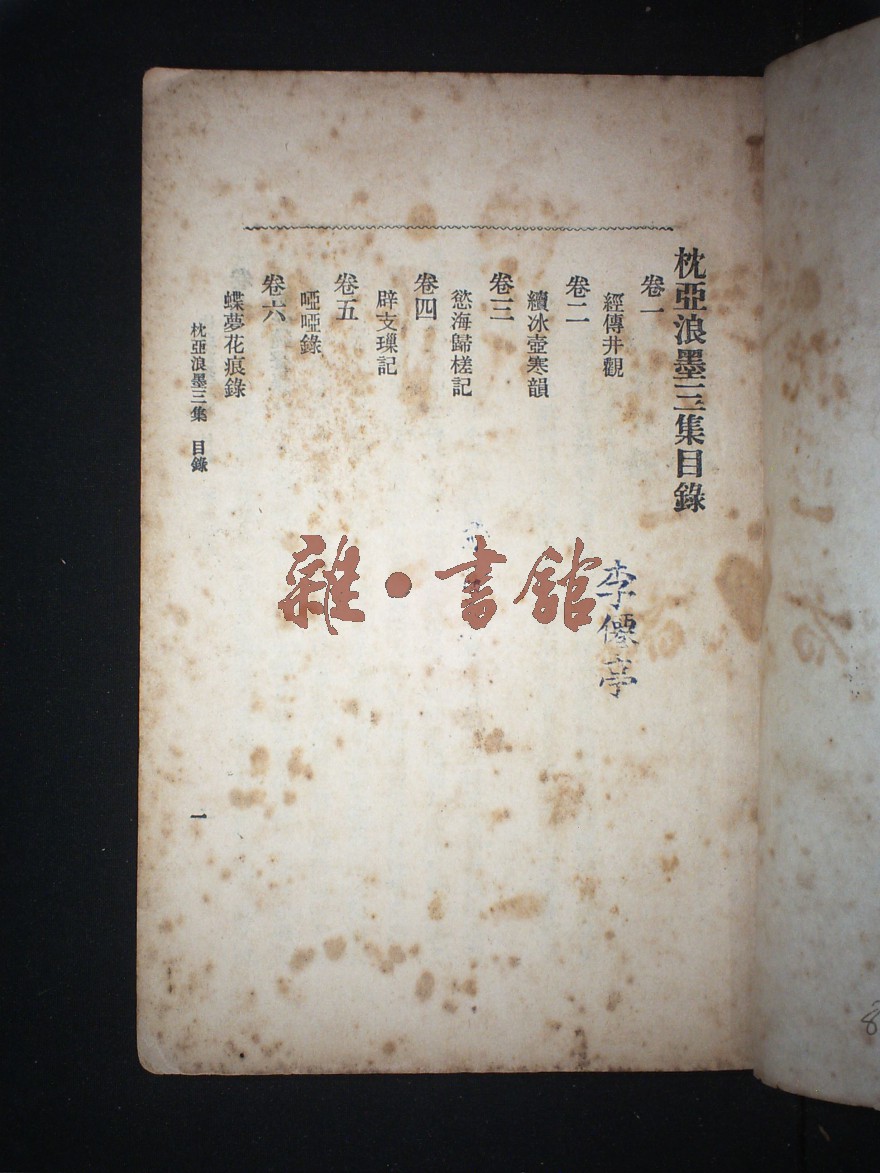 枕亞浪墨三集目錄
卷一
經傳井觀
卷二
續冰壺寒韻
卷三
慾海歸槎記
卷四
辟支璅記
卷五
啞啞錄
卷六
蝶夢花痕錄
枕亞浪墨三集 目錄
一
李僊亭
雜·書舘
8